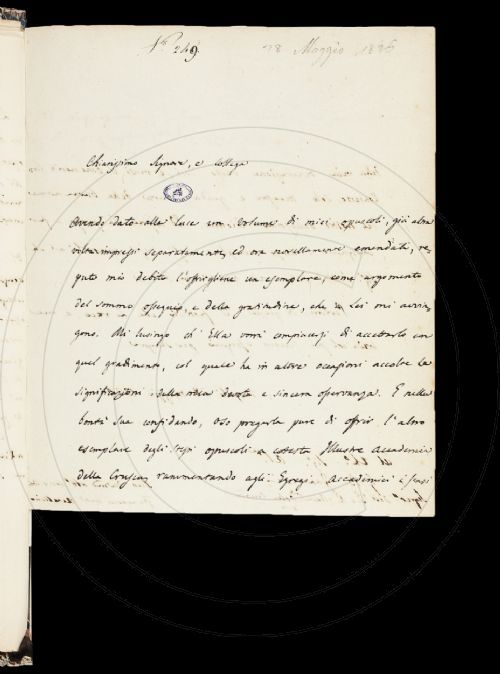 N.º 249.
28 Maggio 1835
Chiarissimo Signore e Collega
Avendo dato alla luce un volume di miei opuscoli, già altra
volta impressi separatamente, ed ora novellamente emendati, re-
puto mio debito l'offrirgliene un esemplare, come argomento
del sommo ossequio, e della gratitudine, che a Lei mi avvin-
gono. Mi lusingo ch' Ella vorrà compiacersi di accettarlo con
quel gradimento, col quale ha in altre occasioni accolte le
significazioni della mia devota e sincera osservanza. E nella
bontà Sua confidando, oso pregarla pure di offrir l'altro
esemplare degli stessi opuscoli a cotesta Illustre Accademia
della Crusca rammentando agli Egregi Accademici i sensi